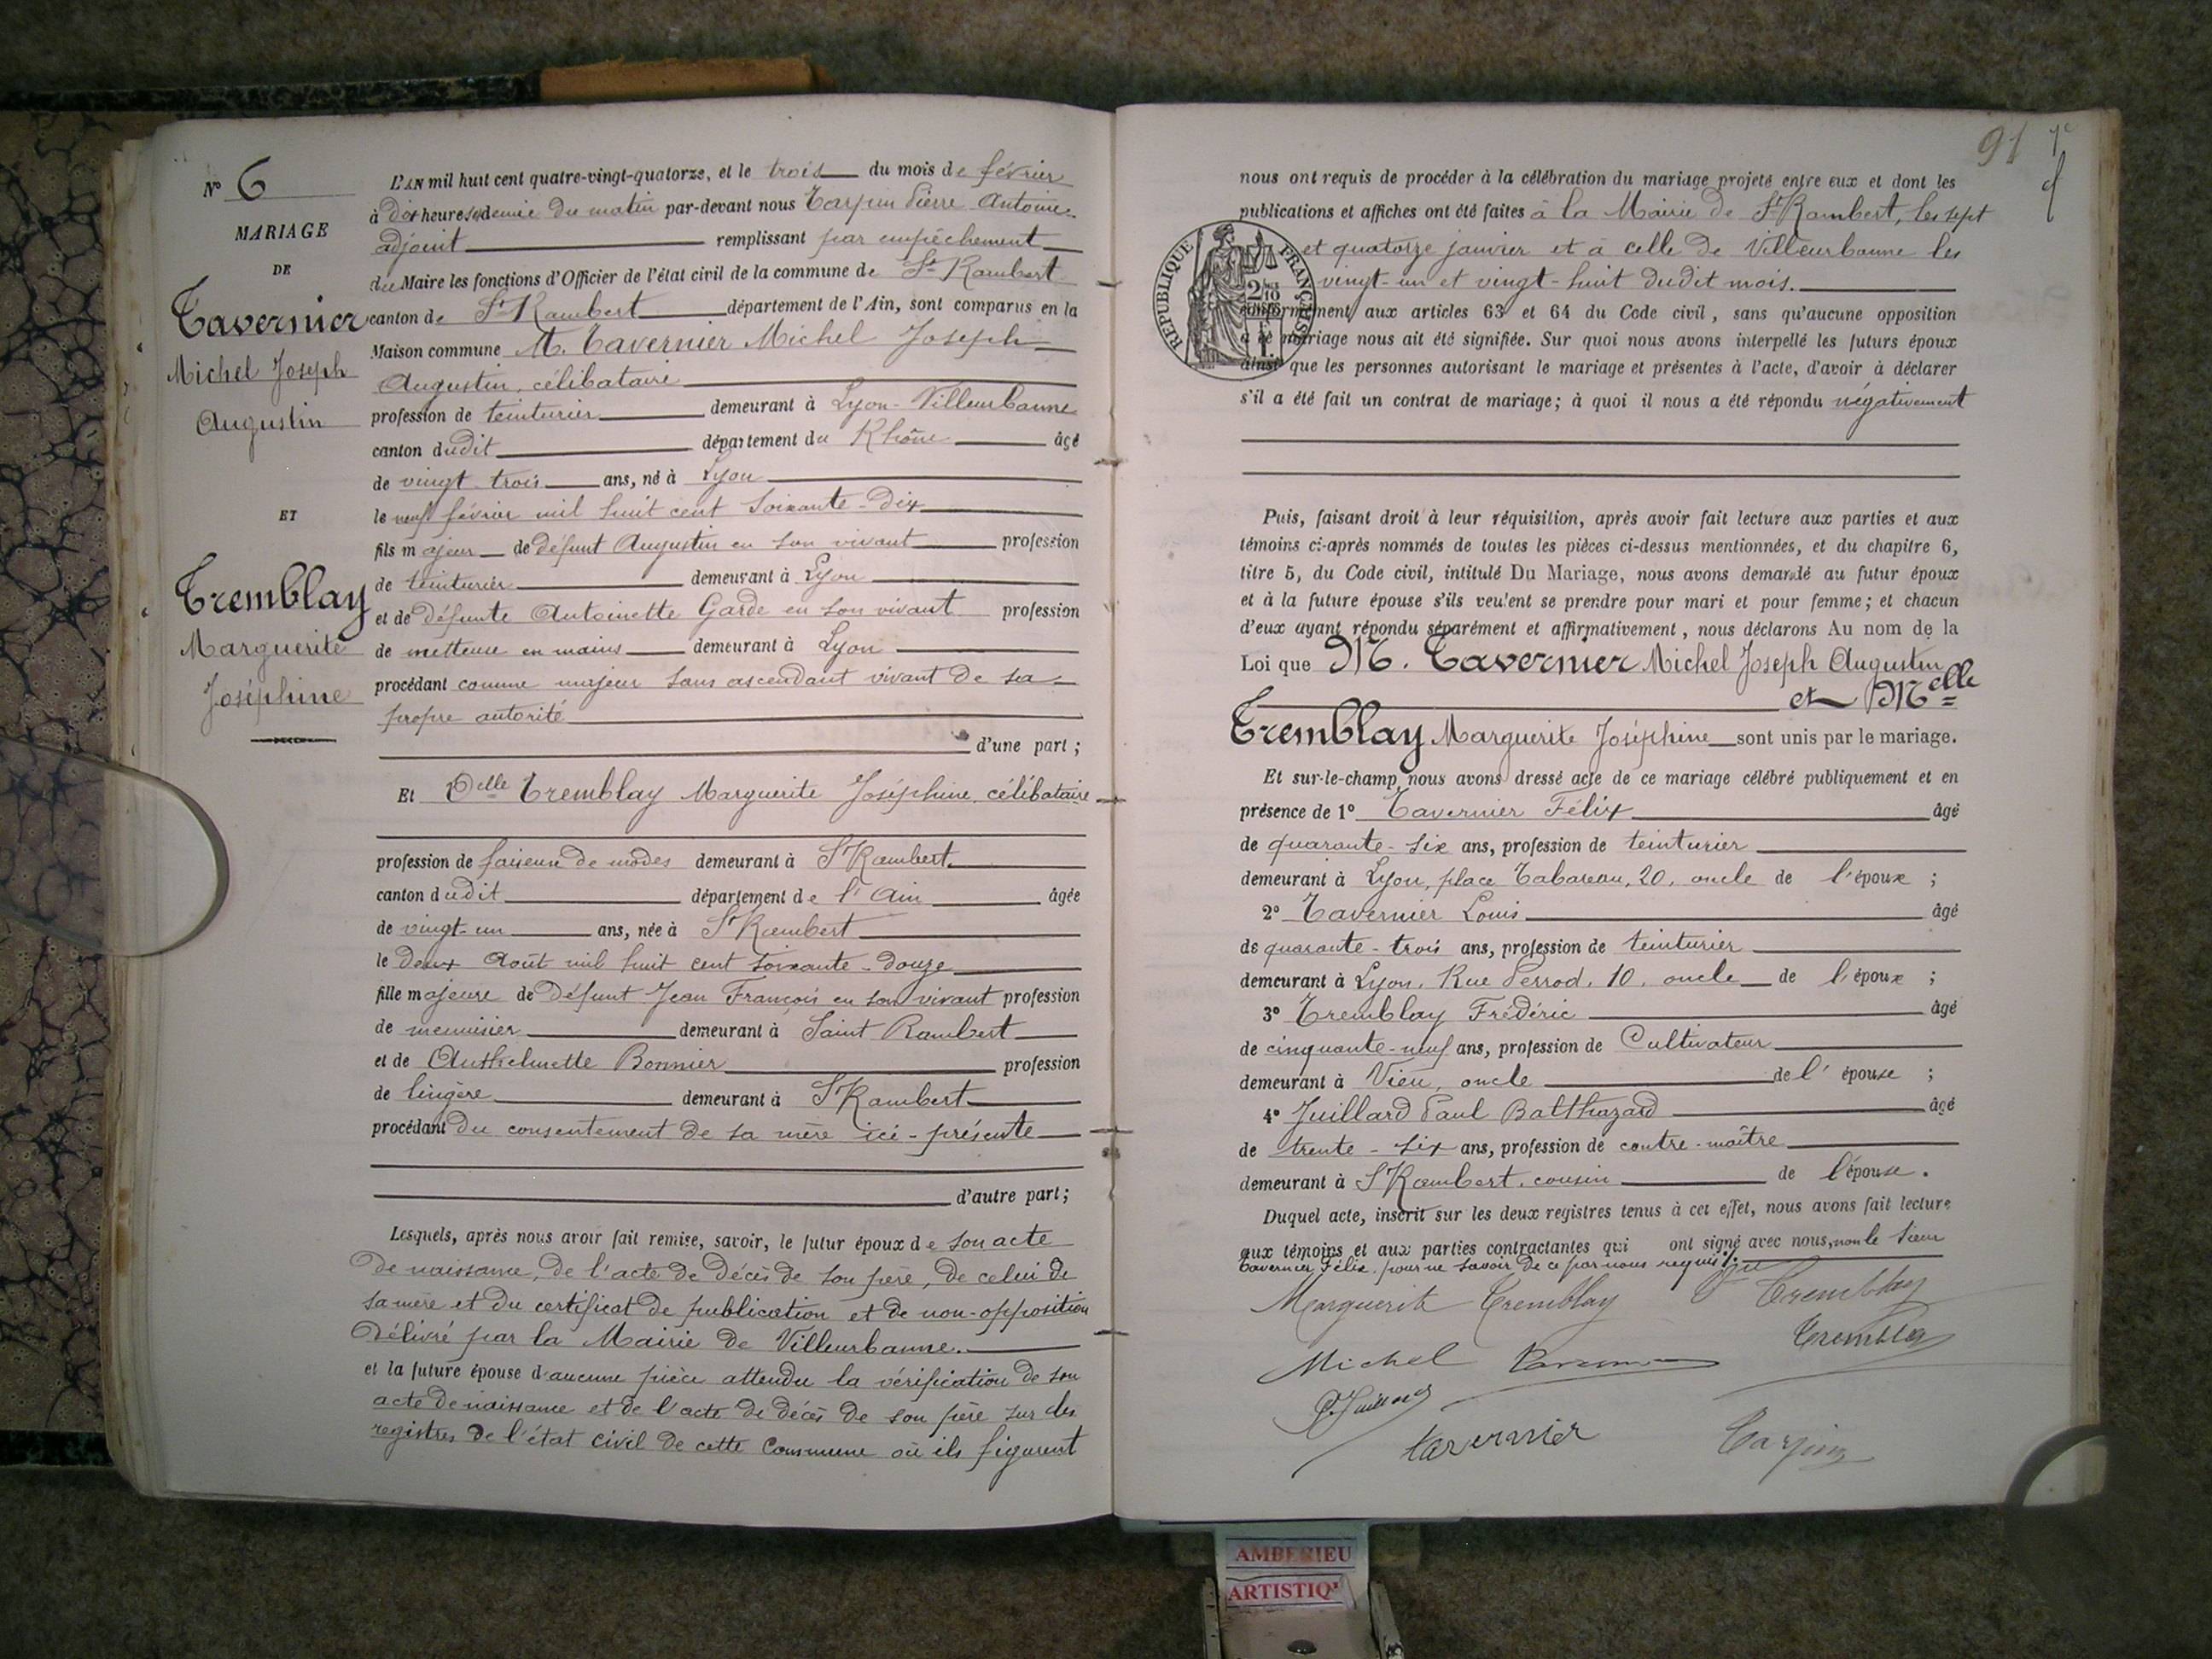 N° 6
MARIAGE
DE
Tavernier
Michel Joseph
Augustin
ET
Tremblay
Marguerite
Joséphine
L'AN mil huit cent quatre-vingt-quatorze, et le trois du mois de février
à dix heures et demie du matin par-devant nous Tarpin Pierre Antoine
adjoint remplissant par empêchement
du Maire les fonctions d'Officier de l'état civil de la commune de St Rambert
canton de St Rambert département de l'Ain, sont comparus en la
Maison commune M. Tavernier Michel Joseph
Augustin, célibataire
profession de teinturier demeurant à Lyon-Villeurbanne
canton dudit département du Rhône âgé
de vingt trois ans, né à Lyon
le neuf février mil huit cent soixante-dix
fils majeur de défunt Augustin en son vivant profession
de teinturier demeurant à Lyon
et de défunte Antoinette Garde en son vivant profession
de metteuse en mains demeurant à Lyon
procédant comme majeur sans ascendant vivant de sa
propre autorité
d'une part ;
Et Delle Tremblay Marguerite Joséphine, célibataire
profession de faiseuse de modes demeurant à St Rambert
canton dudit département de l'Ain âgée
de vingt-un ans, née à St Rambert
le deux Août mil huit cent soixante-douze
fille majeure de défunt Jean François en son vivant profession
de menuisier demeurant à Saint Rambert
et de Anthelmette Bonnier profession
de lingère demeurant à St Rambert
procédant du consentement de sa mère ici-présente
d'autre part ;
Lesquels, après nous avoir fait remise, savoir, le futur époux de son acte
de naissance, de l'acte de décès de son père, de celui de
sa mère et du certificat de publication et de non-opposition
délivré par la Mairie de Villeurbanne.
et la future épouse d'aucune pièce attendu la vérification de son
acte de naissance et de l'acte de décès de son père sur les
registres de l'état civil de cette Commune où ils figurent
91
nous ont requis de procéder à la célébration du mariage projeté entre eux et dont les
publications et affiches ont été faites à la Mairie de St Rambert, les sept
et quatorze janvier et à celle de Villeurbanne les
vingt-un et vingt-huit dudit mois.
REPUBLIQUE FRANÇAISE
conformément aux articles 63 et 64 du Code civil, sans qu'aucune opposition
à ce mariage nous ait été signifiée. Sur quoi nous avons interpellé les futurs époux
ainsi que les personnes autorisant le mariage et présentes à l'acte, d'avoir à déclarer
s'il a été fait un contrat de mariage ; à quoi il nous a été répondu négativement
Puis, faisant droit à leur réquisition, après avoir fait lecture aux parties et aux
témoins ci-après nommés de toutes les pièces ci-dessus mentionnées, et du chapitre 6,
titre 5, du Code civil, intitulé Du Mariage, nous avons demandé au futur époux
et à la future épouse s'ils veulent se prendre pour mari et pour femme ; et chacun
d'eux ayant répondu séparément et affirmativement, nous déclarons Au nom de la
Loi que M. Tavernier Michel Joseph Augustin
et Melle
Tremblay Marguerite Joséphine sont unis par le mariage.
Et sur-le-champ, nous avons dressé acte de ce mariage célébré publiquement et en
présence de 1° Tavernier Félix âgé
de quarante-six ans, profession de teinturier
demeurant à Lyon, place Tabareau, 20, oncle de l'époux ;
2° Tavernier Louis âgé
de quarante-trois ans, profession de teinturier
demeurant à Lyon, Rue Perrod, 10, oncle de l'époux ;
3° Tremblay Frédéric âgé
de cinquante-neuf ans, profession de Cultivateur
demeurant à Vieu, oncle de l'épouse ;
4° Juillard Paul Balthazard âgé
de trente-six ans, profession de contre-maître
demeurant à St Rambert, cousin de l'épouse.
Duquel acte, inscrit sur les deux registres tenus à cet effet, nous avons fait lecture
aux témoins et aux parties contractantes qui ont signé avec nous, non le sieur
Tavernier Félix, pour ne savoir de ce par nous requis.
Marguerite Tremblay Tremblay
Tremblay
Michel Tavernier
P. Juillard
tavernier Tarpin
AMBERIEU
ARTISTIQ'